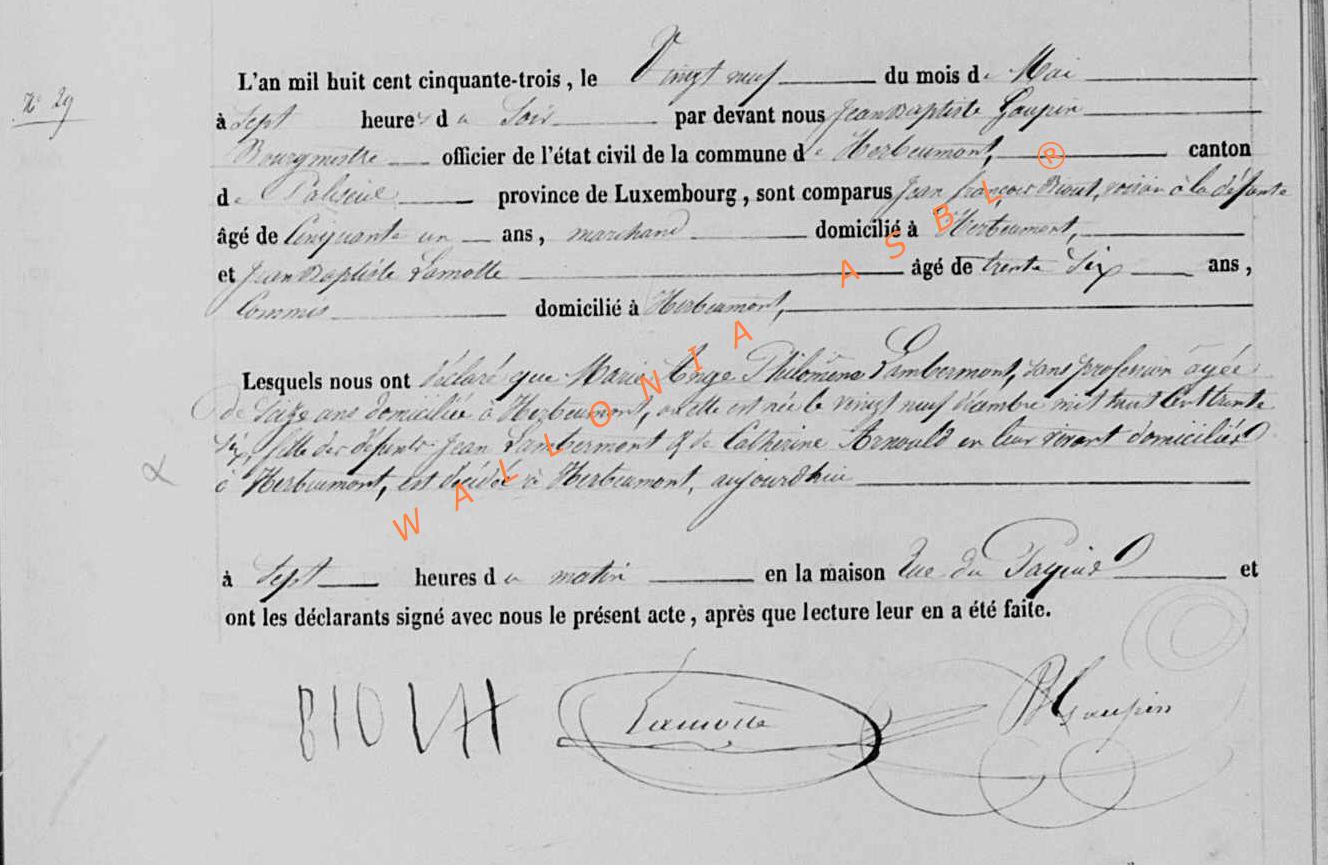 N° 29
L'an mil huit cent cinquante-trois, le Vingt neuf du mois de Mai
à Sept heures du Soir par devant nous Jean Baptiste Gaupin
Bourgmestre officier de l'état civil de la commune de Herbeumont, canton
de Paliseul province de Luxembourg, sont comparus Jean françois voisin à la défunte
âgé de Cinquante un ans, marchand domicilié à Herbeumont,
et Jean Baptiste Lamotte âgé de trente Six ans,
Commis domicilié à Herbeumont,
Lesquels nous ont déclaré que Marie Ange Philomène Lambermont, sans profession âgée
de Seize ans domiciliée à Herbeumont, où elle est née le vingt neuf décembre mil huit Cent trente
Six, fille des défunts Jean Lambermont & de Catherine Arnould en leur vivant domiciliés
à Herbeumont, est décédée à Herbeumont, aujourd'hui
à Sept heures du matin en la maison Rue du et
ont les déclarants signé avec nous le présent acte, après que lecture leur en a été faite.
Lamotte
Gaupin
WALLONIA ASBL ®